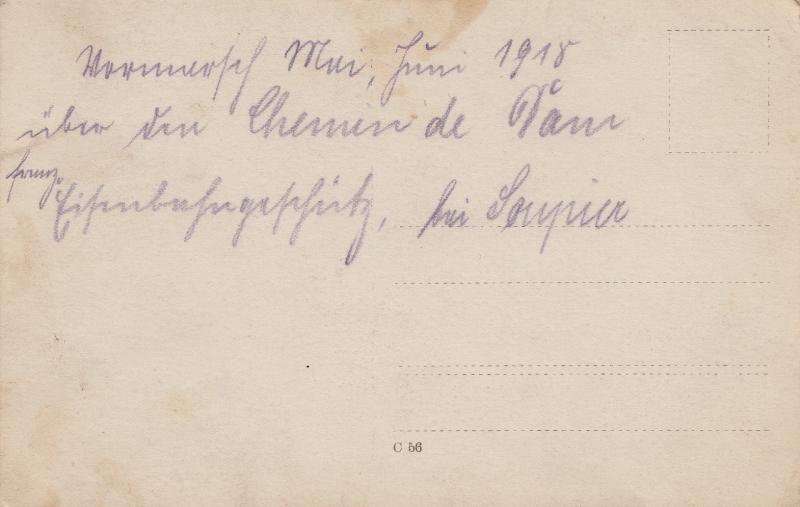 Vormarsch Mai, Juni 1918
über den Chemin de Dam
franz.
Eisenbahngeschütz, bei Soupir
C 56